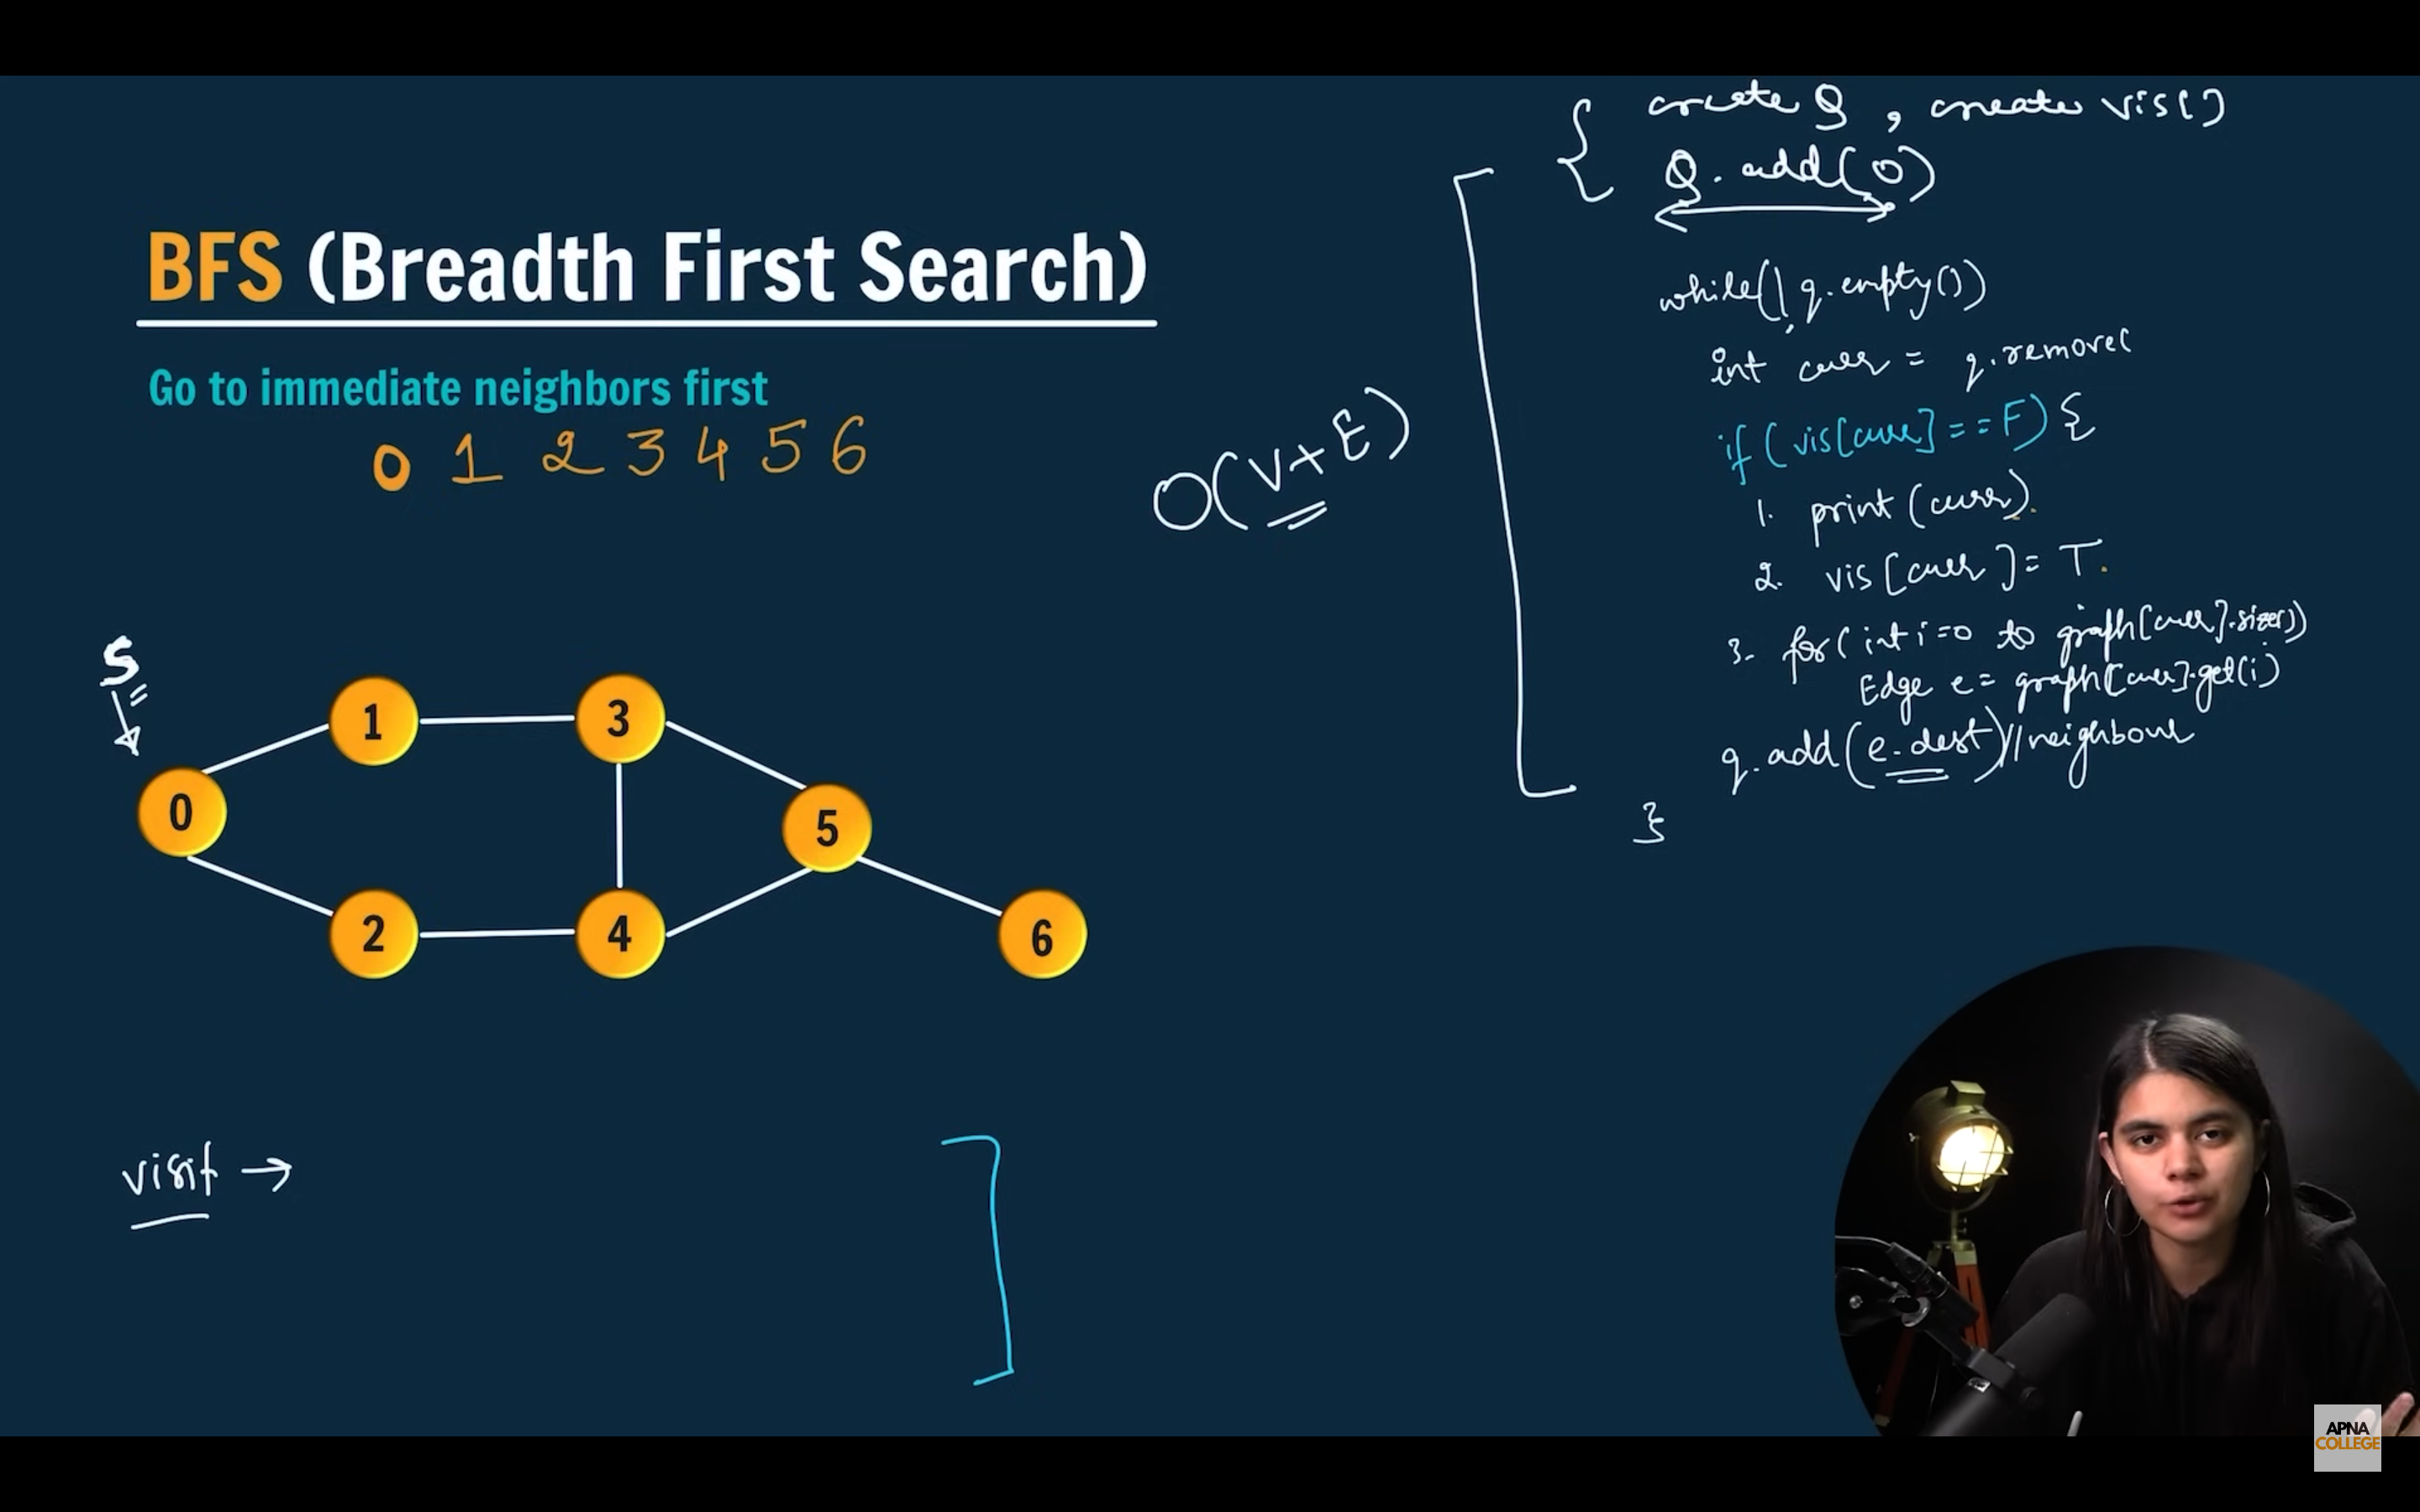 BFS (Breadth First Search)
Go to immediate neighbors first
0 1 2 3 4 5 6
O(V+E)
{ create Q , create vis[]
Q. add(0)
while(! q.empty())
int curr = q.remove(
if (vis[curr]==F) {
1. print (curr).
2. vis[curr]= T.
3. for( int i=0 to graph[curr].size())
Edge e= graph[curr].get(i)
q.add(e.dest)//neighbour
}
S
1
3
0
5
2
4
6
visit →
APNA
COLLEGE